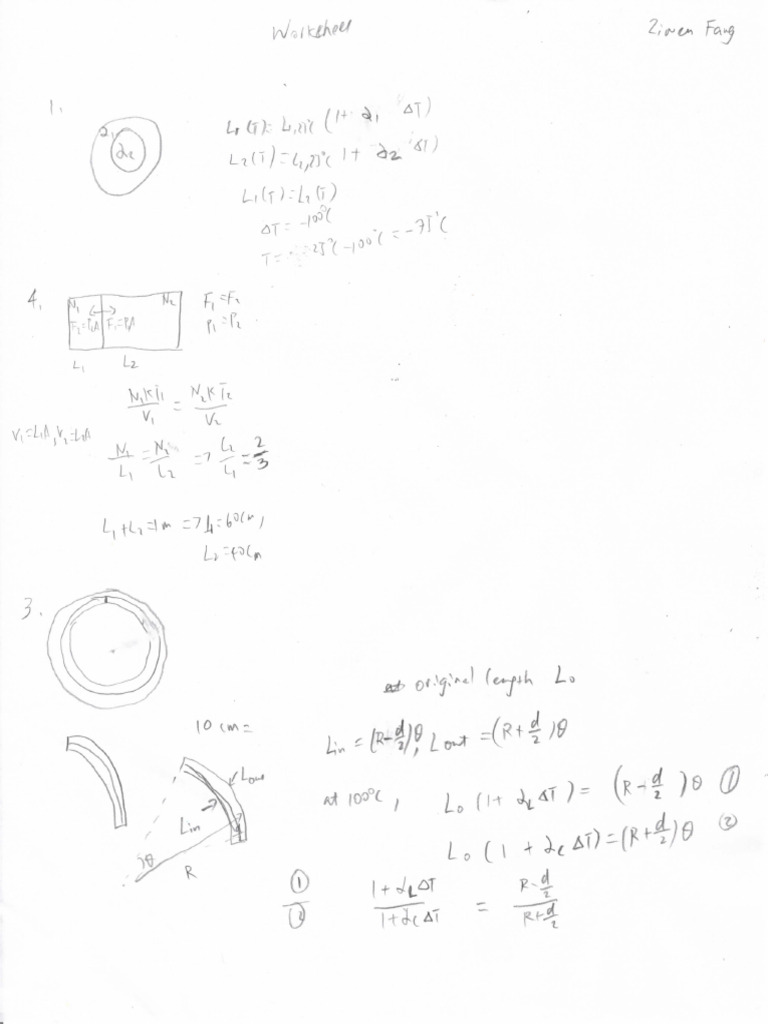 Worksheet Ziwen Fang
1.
α₁
α₂
L₁(T) = L₁,25°C (1 + α₁ ΔT)
L₂(T) = L₂,25°C 1 + α₂ ΔT)
L₁(T) = L₂(T)
ΔT = -100°C
T = 25°C - 100°C = -75°C
4.
N₁ N₂
F₁=P₁A
L₁ L₂
F₁ = F₂
P₁ = P₂
N₁KT₁/V₁ = N₂KT₂/V₂
V₁=L₁A, V₂=L₂A
N₁/L₁ = N₂/L₂ => L₂/L₁ = 2/3
L₁ + L₂ = 1m => L₁ = 60cm,
L₂ = 40cm
3.
original length L₀
10 cm =
Lin = (R - d/2)θ, Lout = (R + d/2)θ
Lout
Lin
θ
R
at 100°C, L₀ (1 + α_L ΔT) = (R - d/2)θ ①
L₀ (1 + α_C ΔT) = (R + d/2)θ ②
①/② 1 + α_L ΔT / 1 + α_C ΔT = R - d/2 / R + d/2